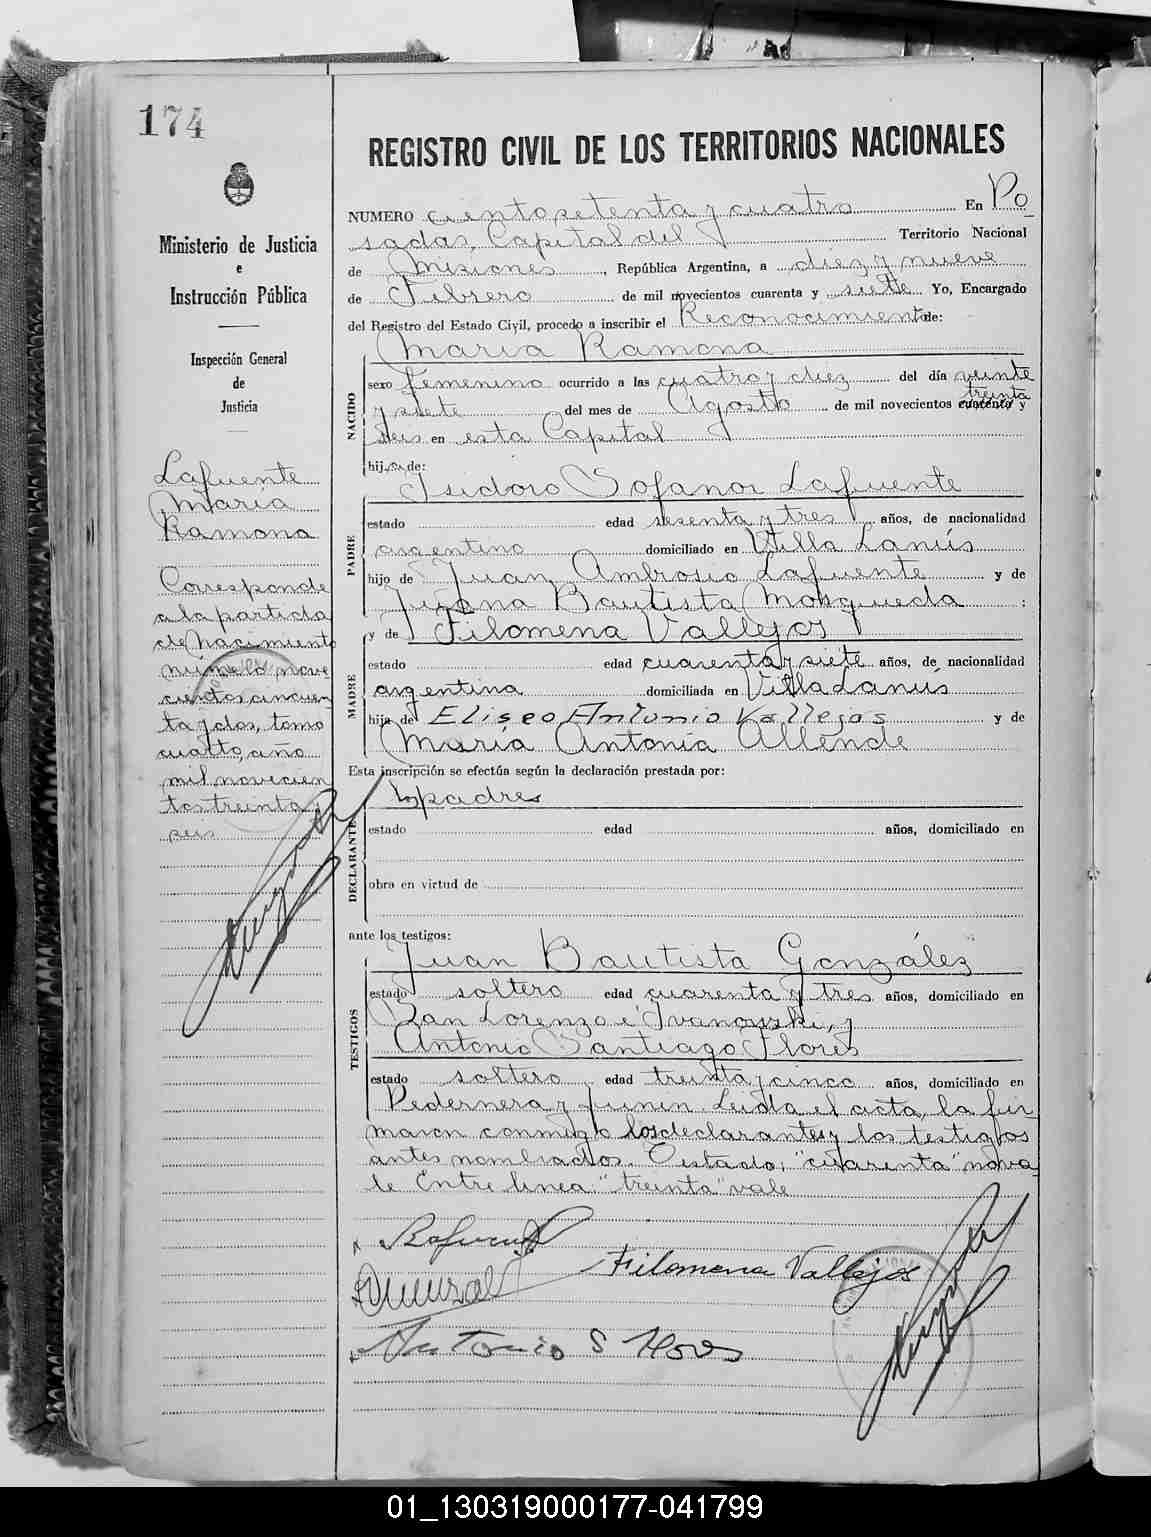 174
Ministerio de Justicia
e
Instrucción Pública
Inspección General
de
Justicia
Lafuente
María
Ramona
Corresponde
a la partida
de nacimiento
número nove
cientos cincuen
ta y dos, tomo
cuarto, año
mil novecien
tos treinta y
seis
REGISTRO CIVIL DE LOS TERRITORIOS NACIONALES
NUMERO ciento setenta y cuatro En Po
sadas, Capital del Territorio Nacional
de Misiones, República Argentina, a diez y nueve
de Febrero de mil novecientos cuarenta y siete Yo, Encargado
del Registro del Estado Civil, procedo a inscribir el Reconocimiento de:
NACIDO
María Ramona
sexo femenino ocurrido a las cuatro y diez del día veinte
treinta
y siete del mes de Agosto de mil novecientos cuarenta y
seis en esta Capital
hija de:
PADRE
Isidoro Sofanor Lafuente
estado edad sesenta y tres años, de nacionalidad
argentino domiciliado en Villa Lanús
hijo de Juan Ambrosio Lafuente y de
Juana Bautista Mosqueda :
MADRE
y de Filomena Vallejos
estado edad cuarenta y siete años, de nacionalidad
argentina domiciliada en Villa Lanús
hija de Eliseo Antonio Vallejos y de
María Antonia Allende
Esta inscripción se efectúa según la declaración prestada por:
DECLARANTE
padres
estado edad años, domiciliado en
obra en virtud de
ante los testigos:
TESTIGOS
Juan Bautista González
estado soltero edad cuarenta y tres años, domiciliado en
San Lorenzo é Ivanowski, y
Antonio Santiago Flores
estado soltero edad treinta y cinco años, domiciliado en
Pedernera y Junín Leída el acta, la fir
maron conmigo los declarantes y los testigos
antes nombrados. Testado: "cuarenta" no va
le Entre linea "treinta" vale
Filomena Vallejos
Antonio S Flores
01_130319000177-041799